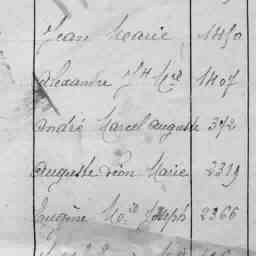 Jean Marie 1450
Alexandre Jh Mel 1407
André Marcel Auguste 372
Auguste Léon Marie 2319
Eugène Joseph 2366